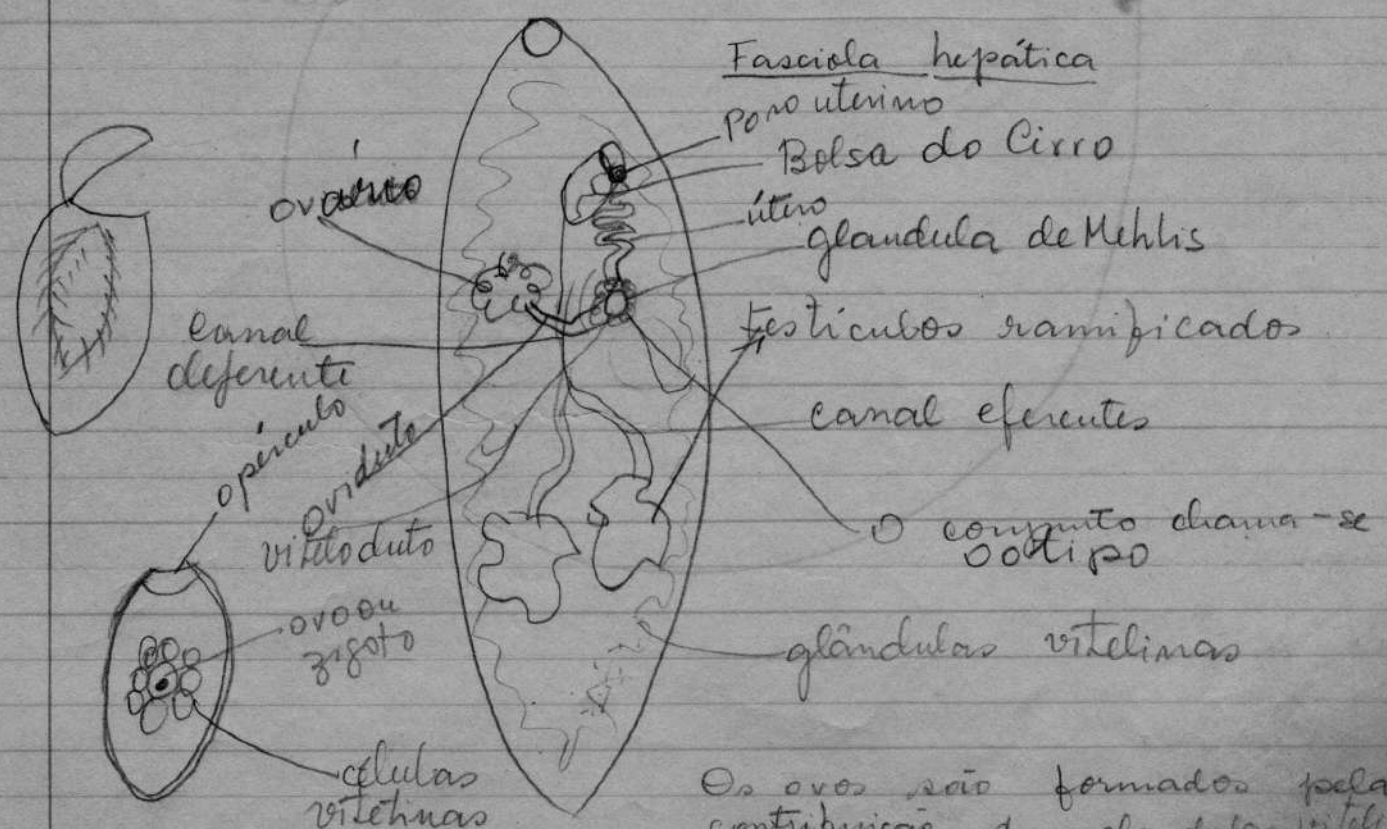 Fasciola hepática
Poro uterino
Bolsa do Cirro
útero
glandula de Mehlis
Testículos ramificados
canal eferentes
O conjunto chama-se
oótipo
glândulas vitelinas
ovário
canal
deferente
opérculo
oviduto
viteloduto
ovo ou
zigoto
células
vitelinas
Os ovos são formados pela
contribuição